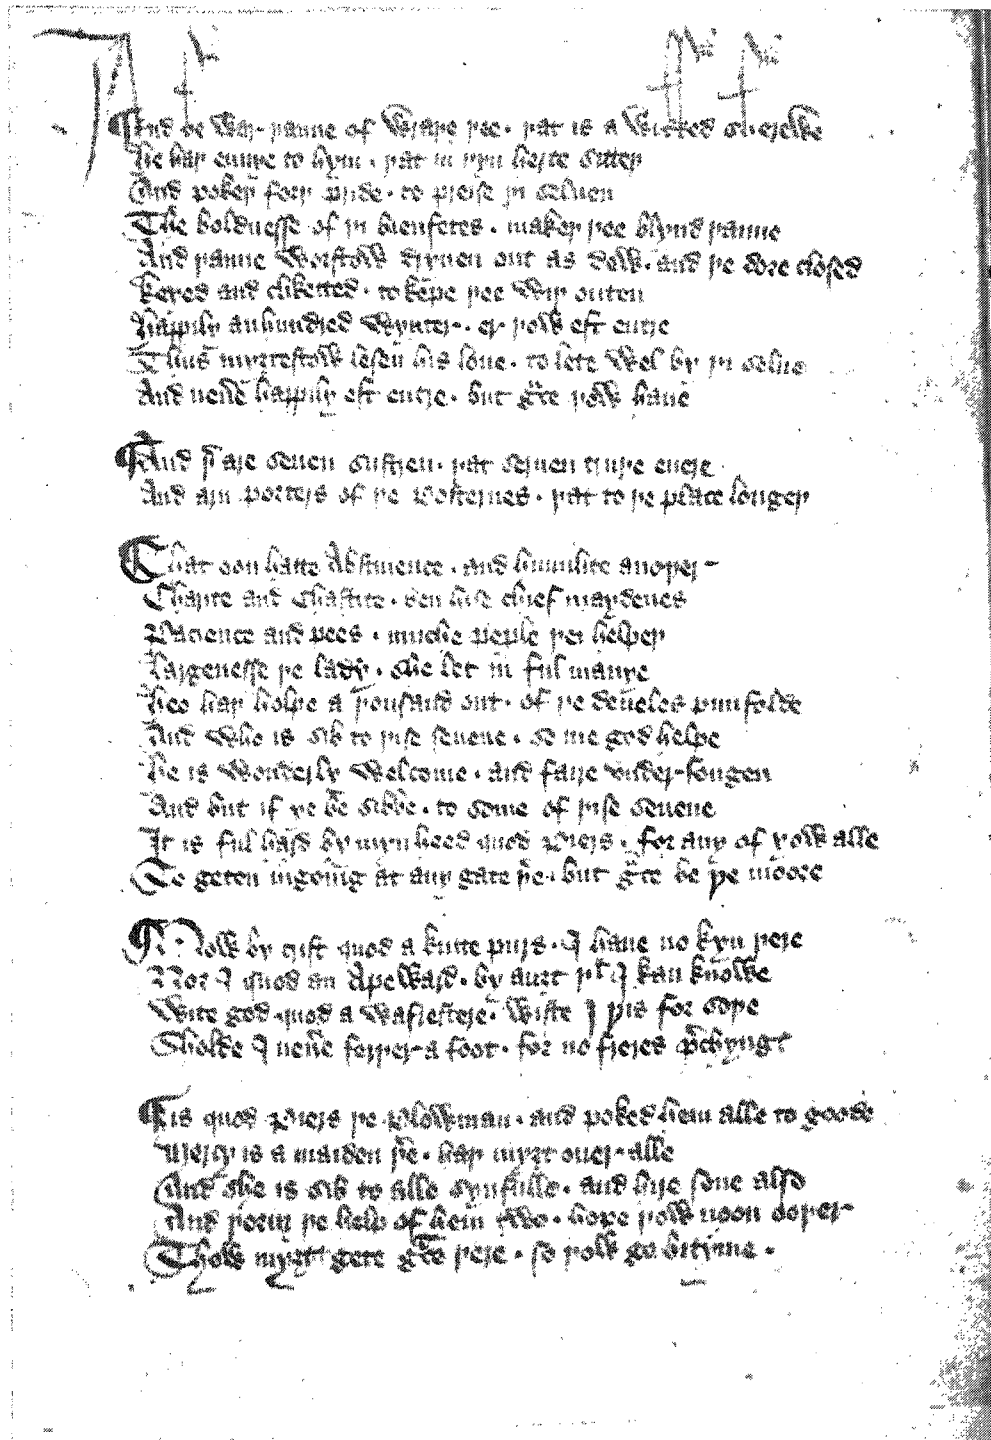 And be war þanne of Wraþe þee . þat is a wikked sherewe
He haþ enuye to hym . þat in þyn herte sitteþ
And pokeþ forþ pride . to preise þi seluen
The boldnesse of þi bienfetes . makeþ þee blynd þanne
And þanne worstow dryuen out as dew . and þe dore closed
Keyed and cliketted . to kepe þee wiþ outen
Happily an hundred wynter . er þow eft entre
Thus myȝtestow lesen his loue . to lete wel by þi selue
And neuere happily eft entre . but grace þow haue
And þer are seuen sustren . þat seruen truþe euere
And arn porters of þe Posternes . þat to þe place longeþ
That oon hatte Abstinence . and humilite anoþer
Charite and Chastite . ben hise chief maydenes
Pacience and pees . muche peple þei helpeþ
Largenesse þe lady . she let in ful manye
Heo haþ holpe a þousand out . of þe deueles punfolde
And who is sib to þise seuene . so me god helpe
He is wonderly welcome . and faire vnder-fongen
And but if ye be sibbe . to some of þise seuene
It is ful hard by myn heed quod Piers . for any of yow alle
To geten ingong at any gate þere . but grace be þe moore
Now by crist quod a kutte purs . I haue no kyn þere
Nor I quod an Apeward . by auȝt þat I kan knowe
Wite god quod a wafrestere . wiste I þis for soþe
Sholde I neuere ferþer a foot . for no freres prechyng
Ȝis quod Piers þe Plowman . and poked hem alle to goode
Mercy is a maiden þere . haþ myȝt ouer alle
And she is sib to alle synfulle . and hire sone also
And þoruȝ þe help of hem two . hope þow noon ooþer
Thow myȝt gete grace þere . so þow go bityme .